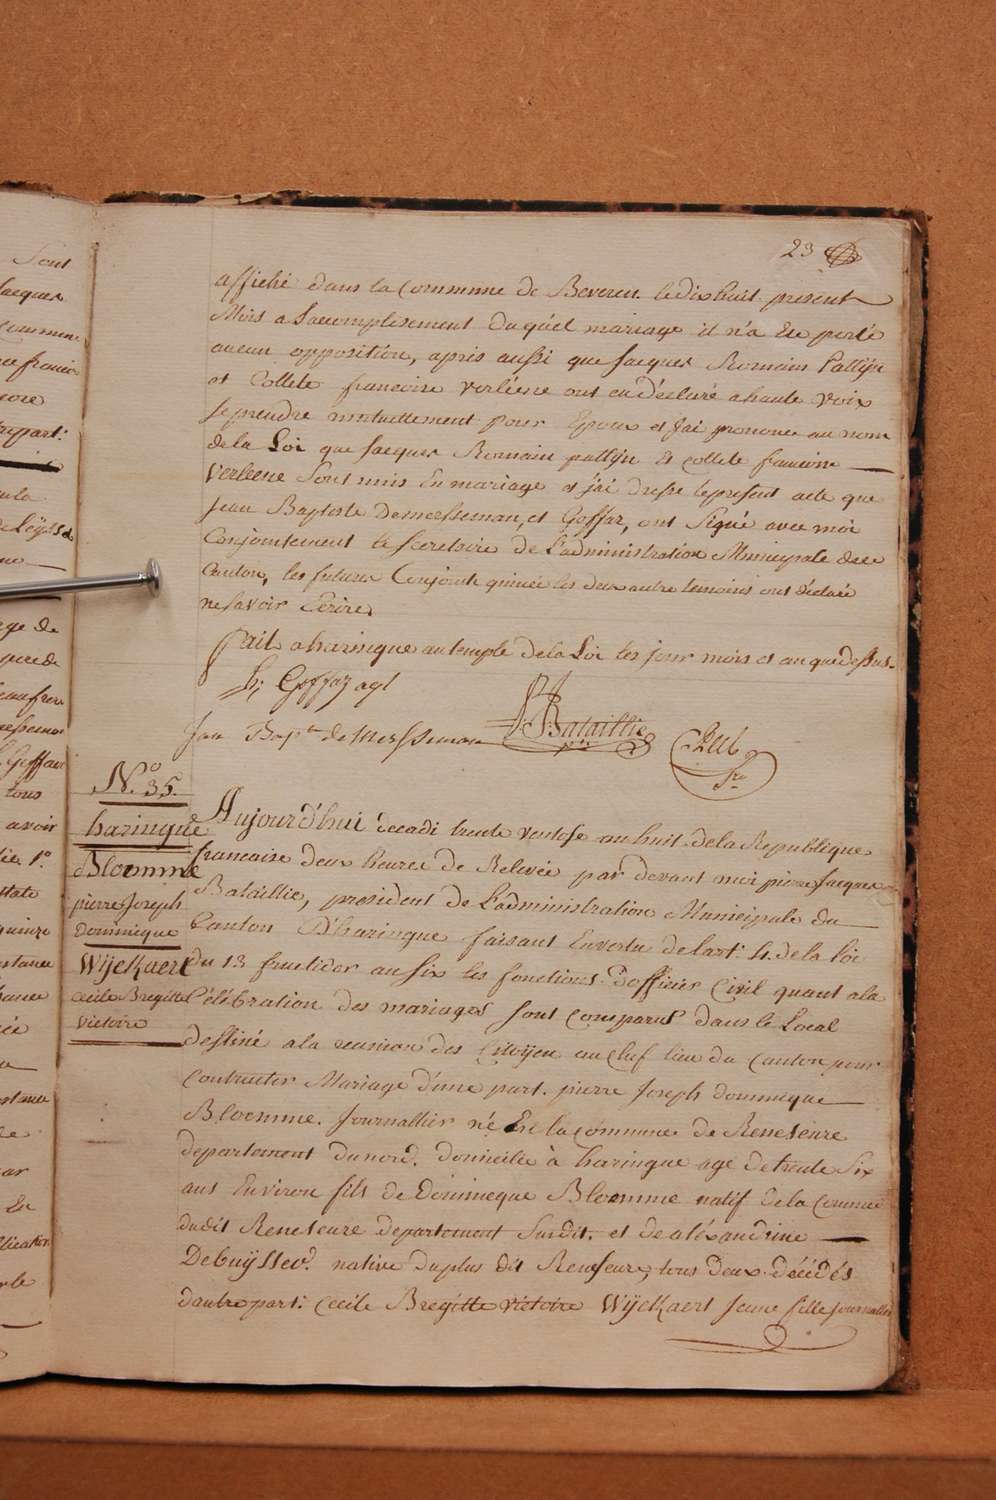 23
affiché dans la Commune de Beveren le dix huit present
Mois a Laccomplissement duquel mariage il n'a Ete porté
aucun opposition, après aussi que Jacques Romain Pattijn
et Collete francoise verleene ont eu déclaré a haute voix
se prendre mutuellement pour Epoux et J'ai prononce au nom
de la Loi que Jacques Romain pattijn Et collete francoise
Verleene Sont unis En mariage et j'ai dresse le present acte que
Jean Baptiste Demersseman, et Goffar, ont Signé avec moi
Conjointement le Secretaire de L'administration Municipale de ce
Canton, les futures Conjoints les deux autre temoins ont déclaré
ne Savoir Ecrire
fait a haringue au temple de la Loi les jour mois et an que dessus.
Goffar agt
Jan Bap.te de Mersseman
Bataillie
N.o 35.
haringue
Bloomme
pierre Joseph
Dominique
Wijckaert
cecile Bregitte
victoire
Aujourd'hui decadi trente ventose an huit de la Republique
francaise deux heures de Relevée par devant moi pierre Jacques
Bataillie, president de L'administration Municipale du
Canton D'haringue faisant En vertu de l'art: 4. de la loi
du 13 fructidor an Six les fonctions d'officier Civil quant a la
Célébration des mariages Sont Comparus dans le Local
destiné a la reunion des Citoyen au Chef lieu du Canton pour
Contracter Mariage d'une part. pierre Joseph dominique
Bloomme. Journallier né En la commune de Renescure
departement du nord. domicilié à haringue age de trente Six
ans Environ fils de Dominique Bloomme natif de la Commune
dudit Renescure departement Susdit. et de aléxandrine
Debuijsser. native du plus dit Renscure, tous deux décédés
d'autre part: Cecile Bregitte victoire Wijckaert Jeune fille journallier